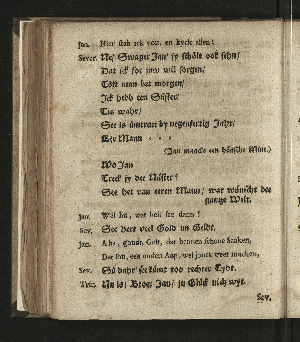 Jan. Hier stah ick vor, en kyck allen!
Sever. Ne/ Swager Jan/ jy schölt ook sehn/
Dat ick för juw will sorgen/
Töft man bet morgen/
Ick hebb een Süster/
Tis wahr/
See is ümtrent by negenfertig Jahr/
Ehr Mann - - -
(Jan maackt een hönsche Mine.)
Wo Jan
Treck jy de Nüster?
See het van eeren Mann/ war wünscht dee
gantze Welt.
Jan. Wel ha, wat heit see dann?
Sev. See hett veel Gold un Geldt.
Jan. Aha, goudt, Gelt, dat brannen schoone Saaken,
Dat kan, een ouden Aap, wel jonck weer maacken,
Sev. Sü dahr/ see kümt too rechter Tydt.
Trin. Nu is/ Broer Jan/ jn Glück nich wyt.
Sev.